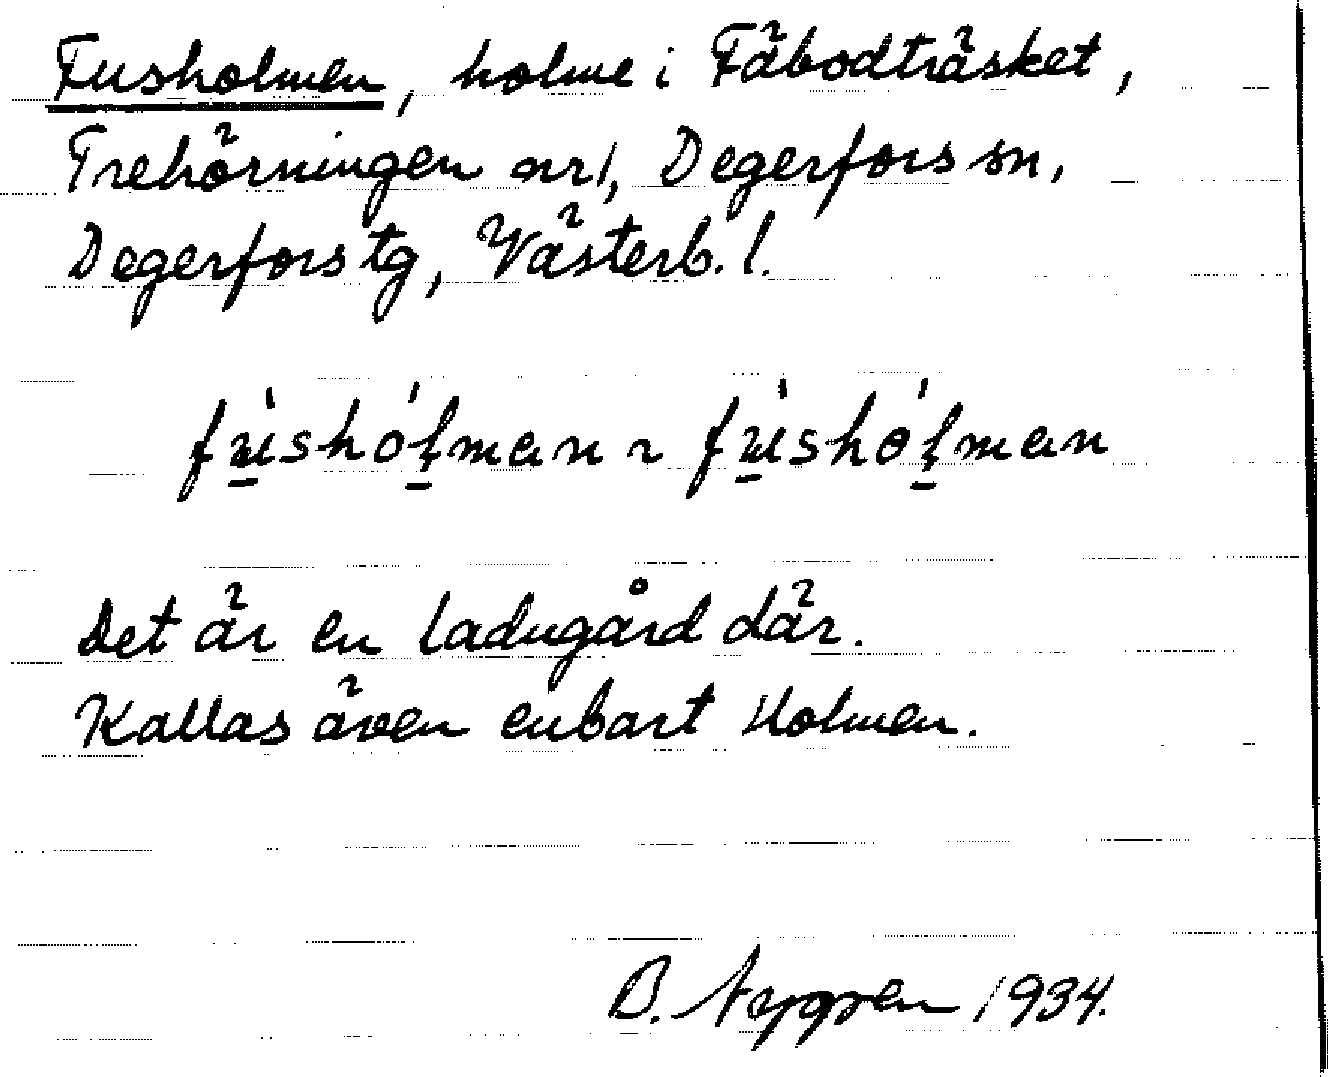 Fusholmen, holme i Fäbodträsket,
Trehörningen nr 1, Degerfors sn,
Degerfors tg, Västerb. l.
fù̲shó̲lman ~ fù̲shó̲lman
Det är en ladugård där.
Kallas även enbart Holmen.
B. Nygren 1934.